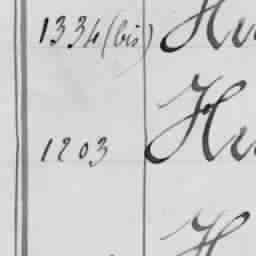 1334 (bis) He
1203 He
H